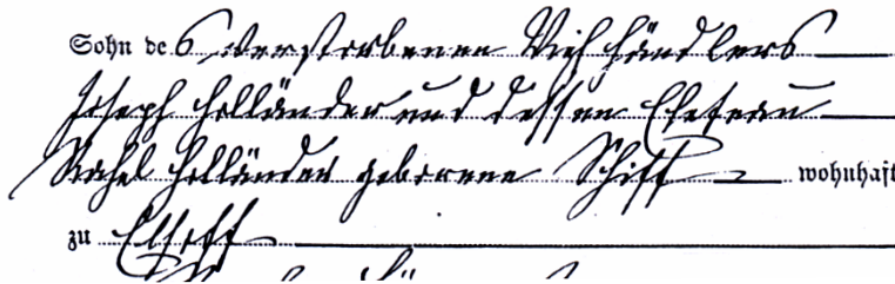 Sohn des verstorbenen Viehhändlers
Joseph Holländer und dessen Ehefrau
Rahel Holländer geborene Schiff wohnhaft
zu Elsoff